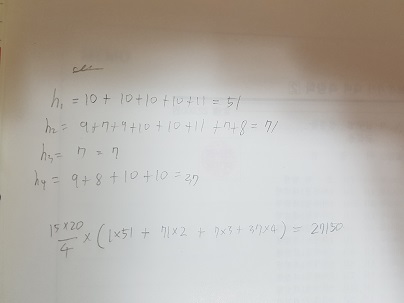 h₁ = 10 + 10+10+10+11 = 51
h₂ = 9+7+9+10+10+11+7+8 = 71
h₃ = 7 = 7
h₄ = 9+8+10+10 = 37
15×20/4 × (1×51 + 71×2 + 7×3 + 37×4) = 27150